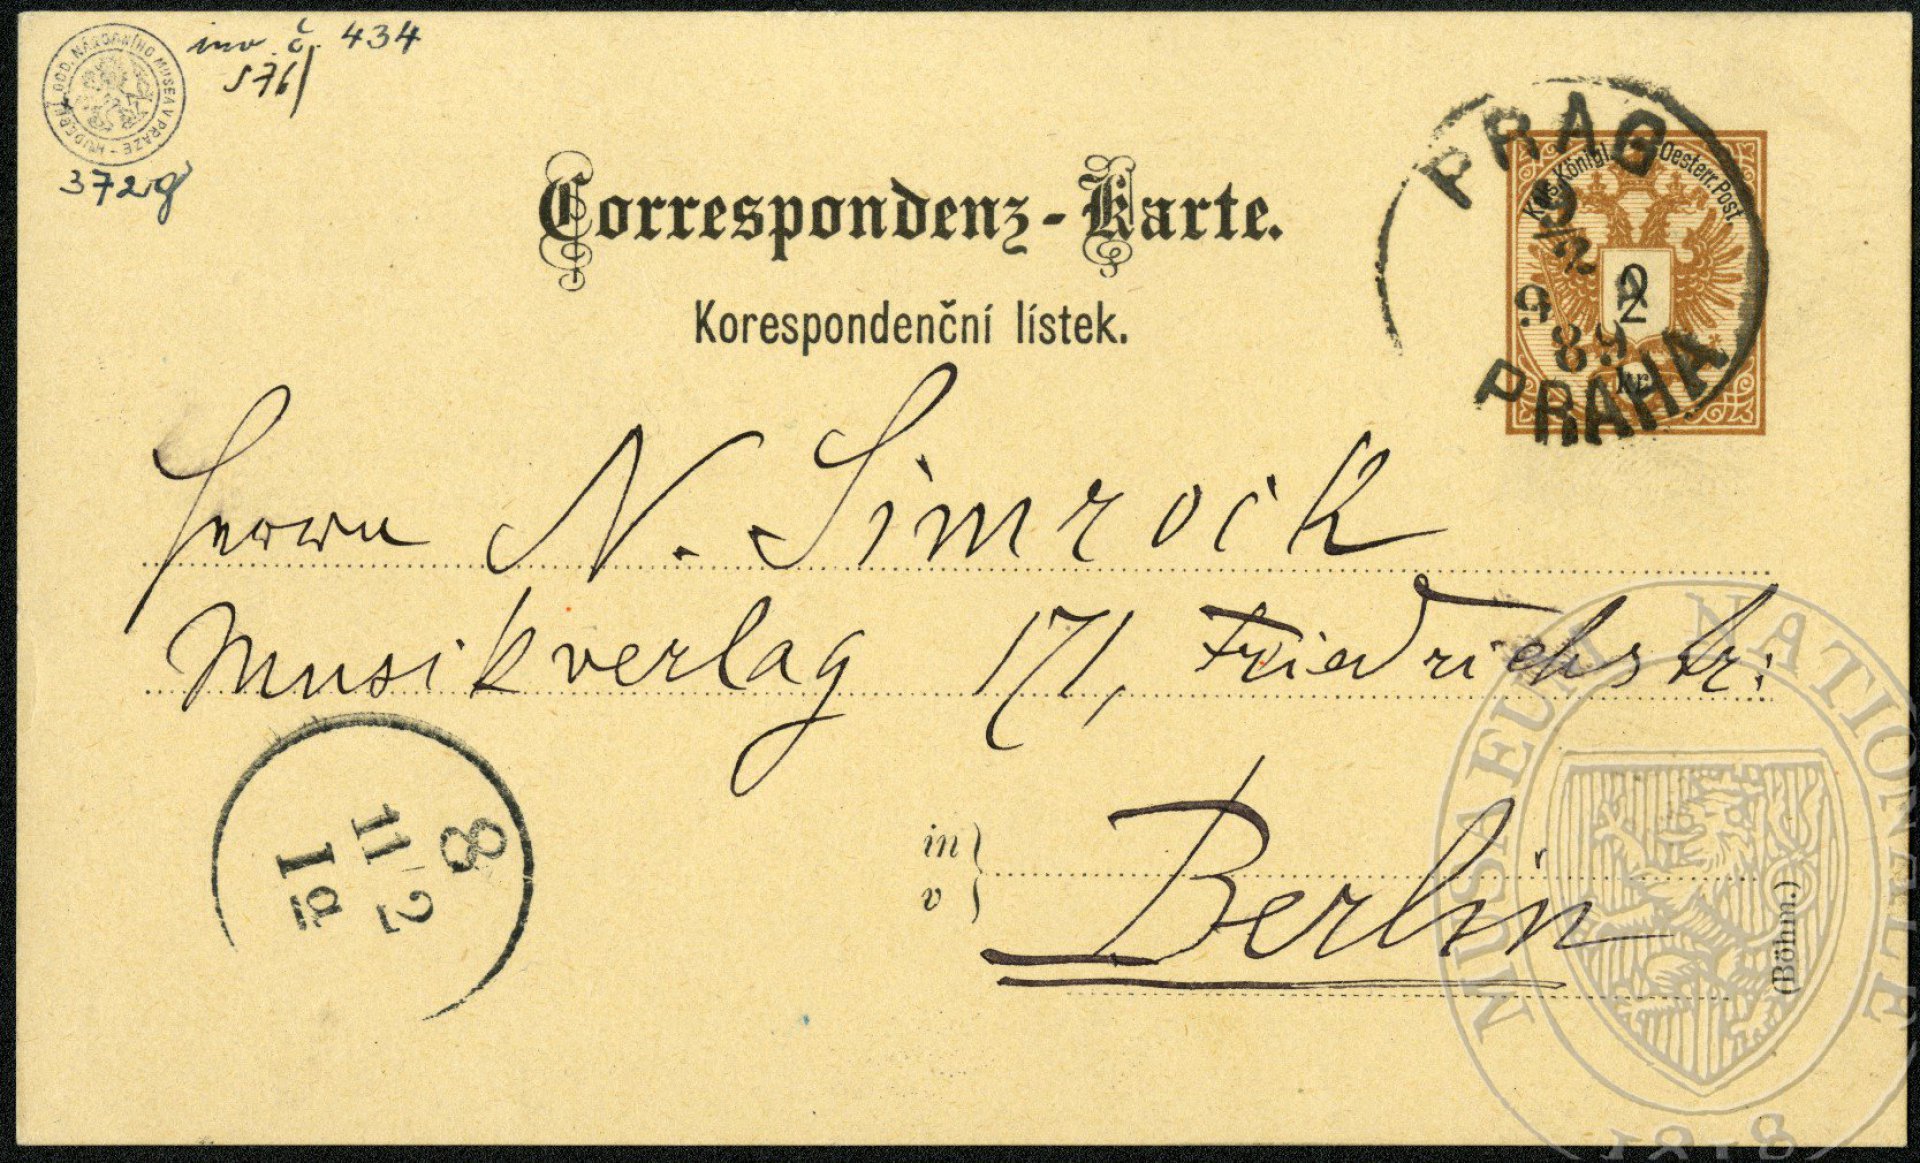 HUDEBNÍ ODD. NÁRODNÍHO MUSEA V PRAZE
inv. č. 434
S76/
372g
Correspondenz-Karte.
Korespondenční lístek.
Kais. Königl. Oesterr. Post.
2
kr
PRAG
9/2
89
PRAHA
Herrn N. Simrock
Musikverlag 171, Friedrichstr:
in
v
Berlin
(Böhm.)
8
11 2
Ia
MUSAEUM NATIONALE
1818